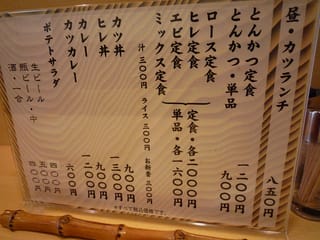 昼・カツランチ 八五〇円
とんかつ定食 一二〇〇円
とんかつ・単品 九〇〇円
ロース定食
ヒレ定食
エビ定食
ミックス定食
定食・各二〇〇〇円
単品・各一六〇〇円
汁 三〇〇円 ライス 三〇〇円 お新香 三〇〇円
カツ丼 九〇〇円
ヒレ丼 一三〇〇円
カレー 九〇〇円
カツカレー 一二〇〇円
ポテトサラダ 六〇〇円
生ビール 四〇〇円
瓶ビール・中 五〇〇円
酒・一合 四〇〇円